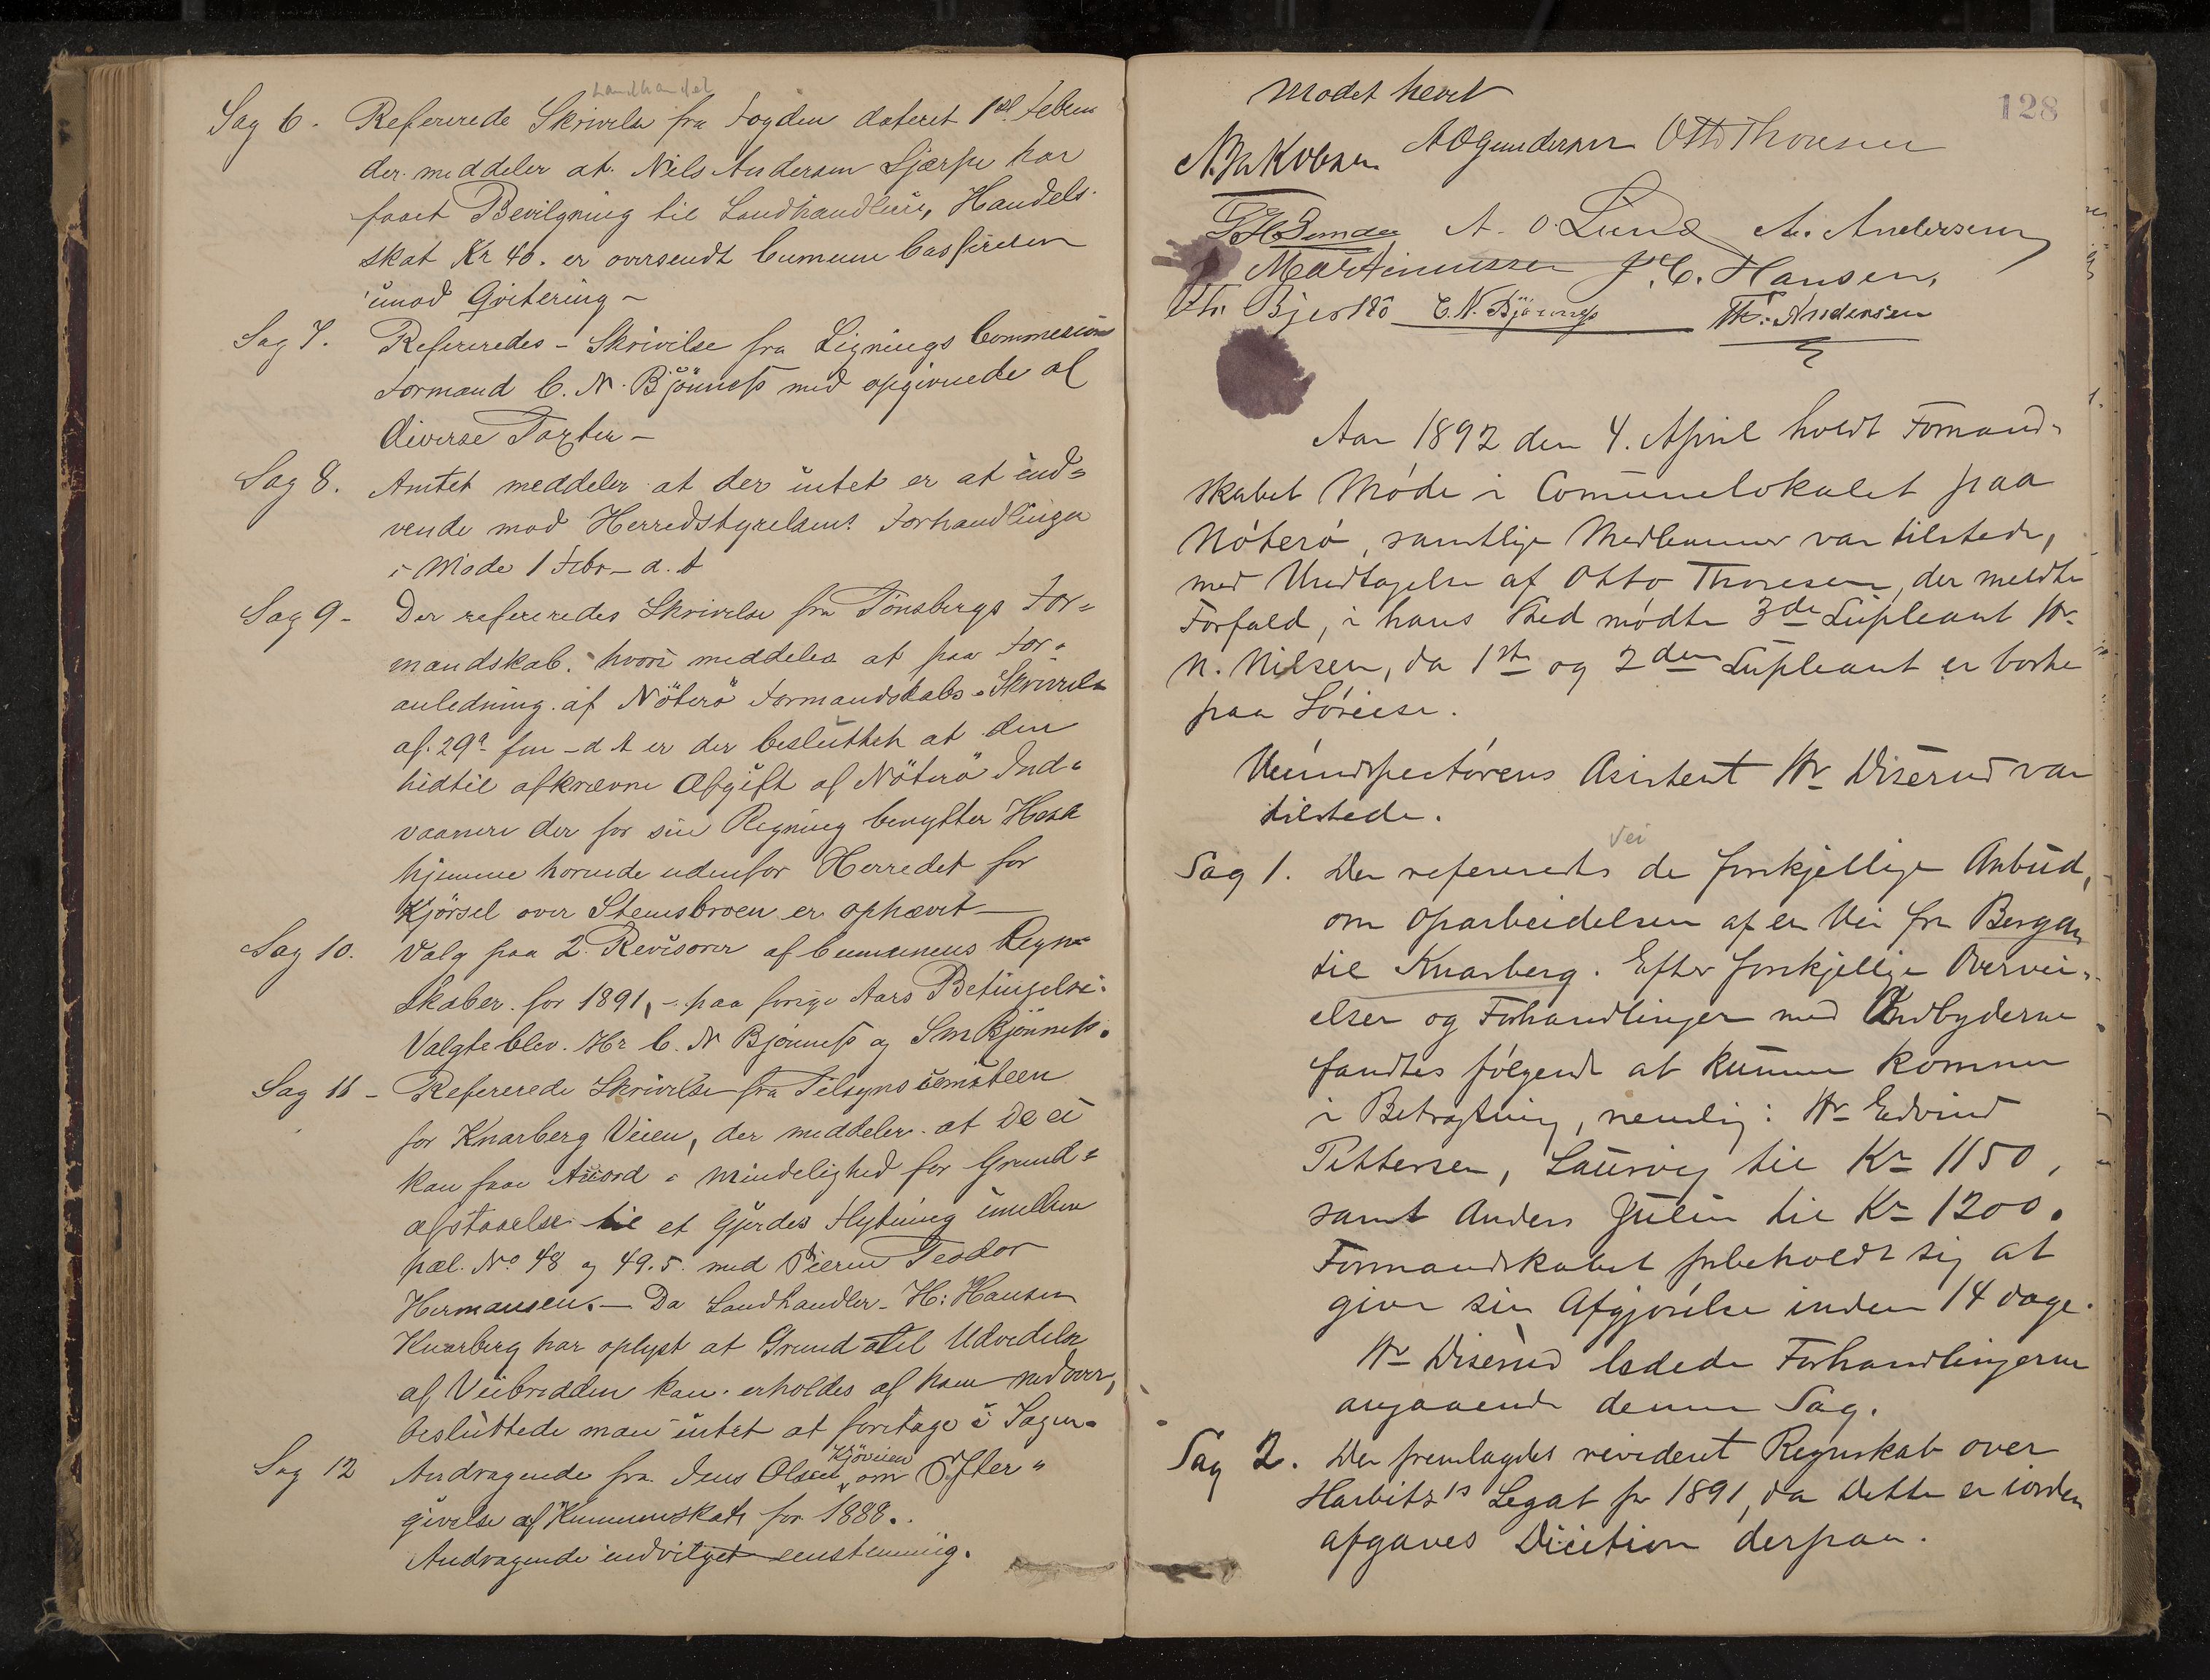 Landhandel
Sag 6. Refererede Skrivelse fra Fogden dateret 1st Febru
der meddeler at Nils Andersen Sjærpe har
faaet Bevilgning til Landhandleri, Handels-
skat Kr 40. er oversendt Comune Casserern
imod Qvitering –
Sag 7. Refereredes – Skrivelse fra Lignings Commesions
Formand C. N. Bjönness med opgivende af
diverse Taxter –
Sag 8. Amtet meddeler at der intet er at ind=
vende mod Herredstyrelsens Forhandlinger
i Møde 1 Febr – d. A
Sag 9 – Der refereredes Skrivelse fra Tönsbergs For=
mandskab. hvori meddeles at paa For=
anledning af Nöterö Formandskabs Skrivelse
af 29d – d A er der besluttet at den
hidtil afkrævne Afgift af Nöterö Ind=
vaanere der for sin Regning benytter Heste
hjemme hørende udenfor Herredet for
Kjörsel over Stensbroen er ophævet –
Sag 10. Valg paa 2 Revisorer af Comunens Regn=
skaber for 1891, – paa forige Aars Betingelse.
Valgte blev. Hr C. N Bjönness og S M Bjönness.
Sag 11 – Refererede Skrivelse fra Tilsyns comiteen
for Knarberg Veien, der meddeler at De ei
kan faae Accord i Mindelighed for Grund=
afstaaelse til et Gjerdes Flytning imellem
pæl No 48 og 49.5 med Eieren Teodor
Hermansen. – Da Landhandler H: Hansen
Knarberg har oplyst at Grund til Udvidelse
af Veibredden kan erholdes af ham nedover,
besluttede man intet at foretage i Sagen.
Kjöveien
Sag 12 Andragende fra Jens Olsen, om Efter=
givelse af Kummunskat for 1888.
Andragende indvilget enstemmig.
128
Mødet hevet
N. Jakobsen A O Gundersen Otto Thoresen
A. O. Lund A. Andersen
Martinussen J. C. Hansen,
Bjerkö C. N. Bjönness Th. Andersen
Aar 1892 den 4. April holdt Formand-
skabet Møde i Comunelokalet paa
Nøterø, samtlige Medlemmer var tilstede,
med Undtagelse af Otto Thoresen, der meldte
Forfald, i hans Sted mødte 3de Supleant Hr
N. Nilsen, da 1ste og 2den Supleant er borte
paa Søreise.
Veiinspectørens Asistent Hr Diserud var
tilstede.
Vei
Sag 1. Der refereredes de forskjellige Anbud,
om Oparbeidelsen af en Vei fra Bergan
til Knarberg. Efter forskjellige Overvei-
elser og Forhandlinger med Anbyderne
fandtes følgende at kunne komme
i Betragtning, nemlig: Hr Edvind
Pettersen, Laurvig til Kr 1150,
samt Anders Julin til Kr 1200.
Formandskabet forbeholdt sig at
give sin Afgjørelse inden 14 dage.
Hr Diserud ledede Forhandlingerne
angaaende denne Sag.
Sag 2. Der fremlagdes revideret Regnskab over
Harbitz's Legat for 1891, da Dette er iorden
afgaves Dicition derpaa.